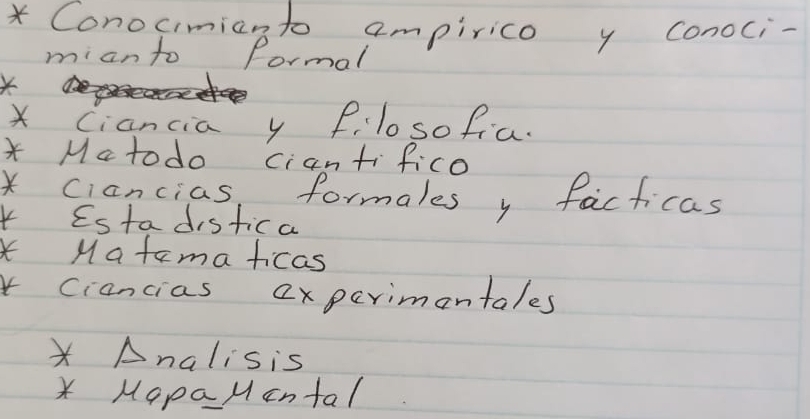 * Conocimiento empirico y conoci-
miento formal
*
* Ciencia y filosofia.
* Metodo cientifico
* Ciencias formales y fácticas
* Estadistica
* Matematicas
* Ciencias experimentales
* Analisis
* Mapa_Mental.